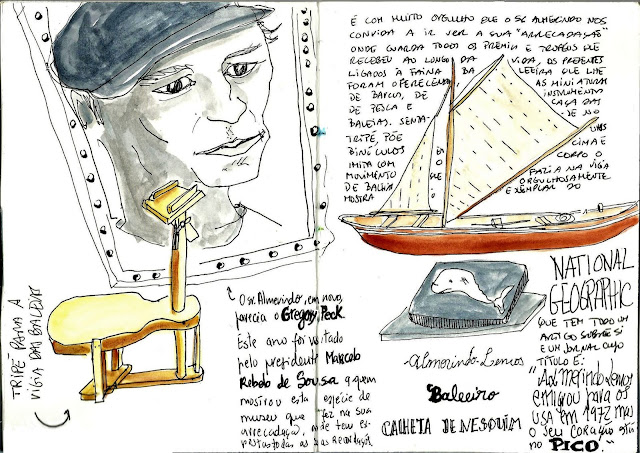 TRIPÉ PARA A
VIGIA DAS BALEIAS
O sr. Almerindo, em novo,
parecia o Gregory Peck
Este ano foi visitado
pelo presidente Marcelo
Rebelo de Sousa a quem
mostrou esta espécie de
museu que faz na sua
arrecadação, onde tem ex-
postas todas as suas recordações
É COM MUITO ORGULHO QUE O SR ALMERINDO NOS
CONVIDA A IR VER A SUA "ARRECADAÇÃO"
ONDE GUARDA TODOS OS PRÉMIOS E TROFÉUS QUE
RECEBEU AO LONGO DA VIDA, OS PRESENTES
LIGADOS À FAINA BALEEIRA QUE LHE
FORAM OFERECENDO, AS MINIATURAS
DE BARCOS, DE INSTRUMENTOS
DE PESCA E CAÇA DAS
BALEIAS. SENTA-SE NO
TRIPÉ, PÕE UNS
BINÓCULOS EM CIMA E
IMITA COM O CORPO O
MOVIMENTO QUE FAZIA NA VIGIA
DE BALEIAS ORGULHOSAMENTE
MOSTRA O EXEMPLAR DO
NATIONAL
GEOGRAPHIC
QUE TEM TODO UM
ARTIGO SOBRE SI
E UM JORNAL CUJO
TÍTULO É:
"Almerindo Lemos
emigrou para os
USA em 1972 mas
o seu coração está
no PICO."
Almerindo Lemos
Baleeiro
CALHETA DE NESQUIM